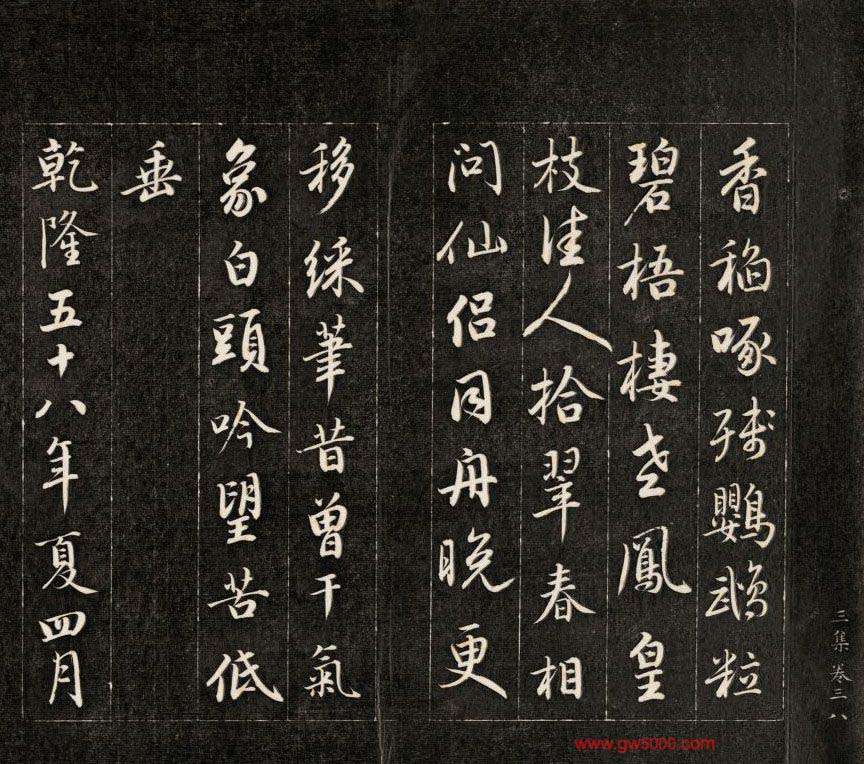 三集 卷三 八
香稻啄殘鸚鵡粒
碧梧棲老鳳皇
枝佳人拾翠春相
問仙侶同舟晚更
移綵筆昔曾干氣
象白頭吟望苦低
垂
乾隆五十八年夏四月
www.gw5000.com